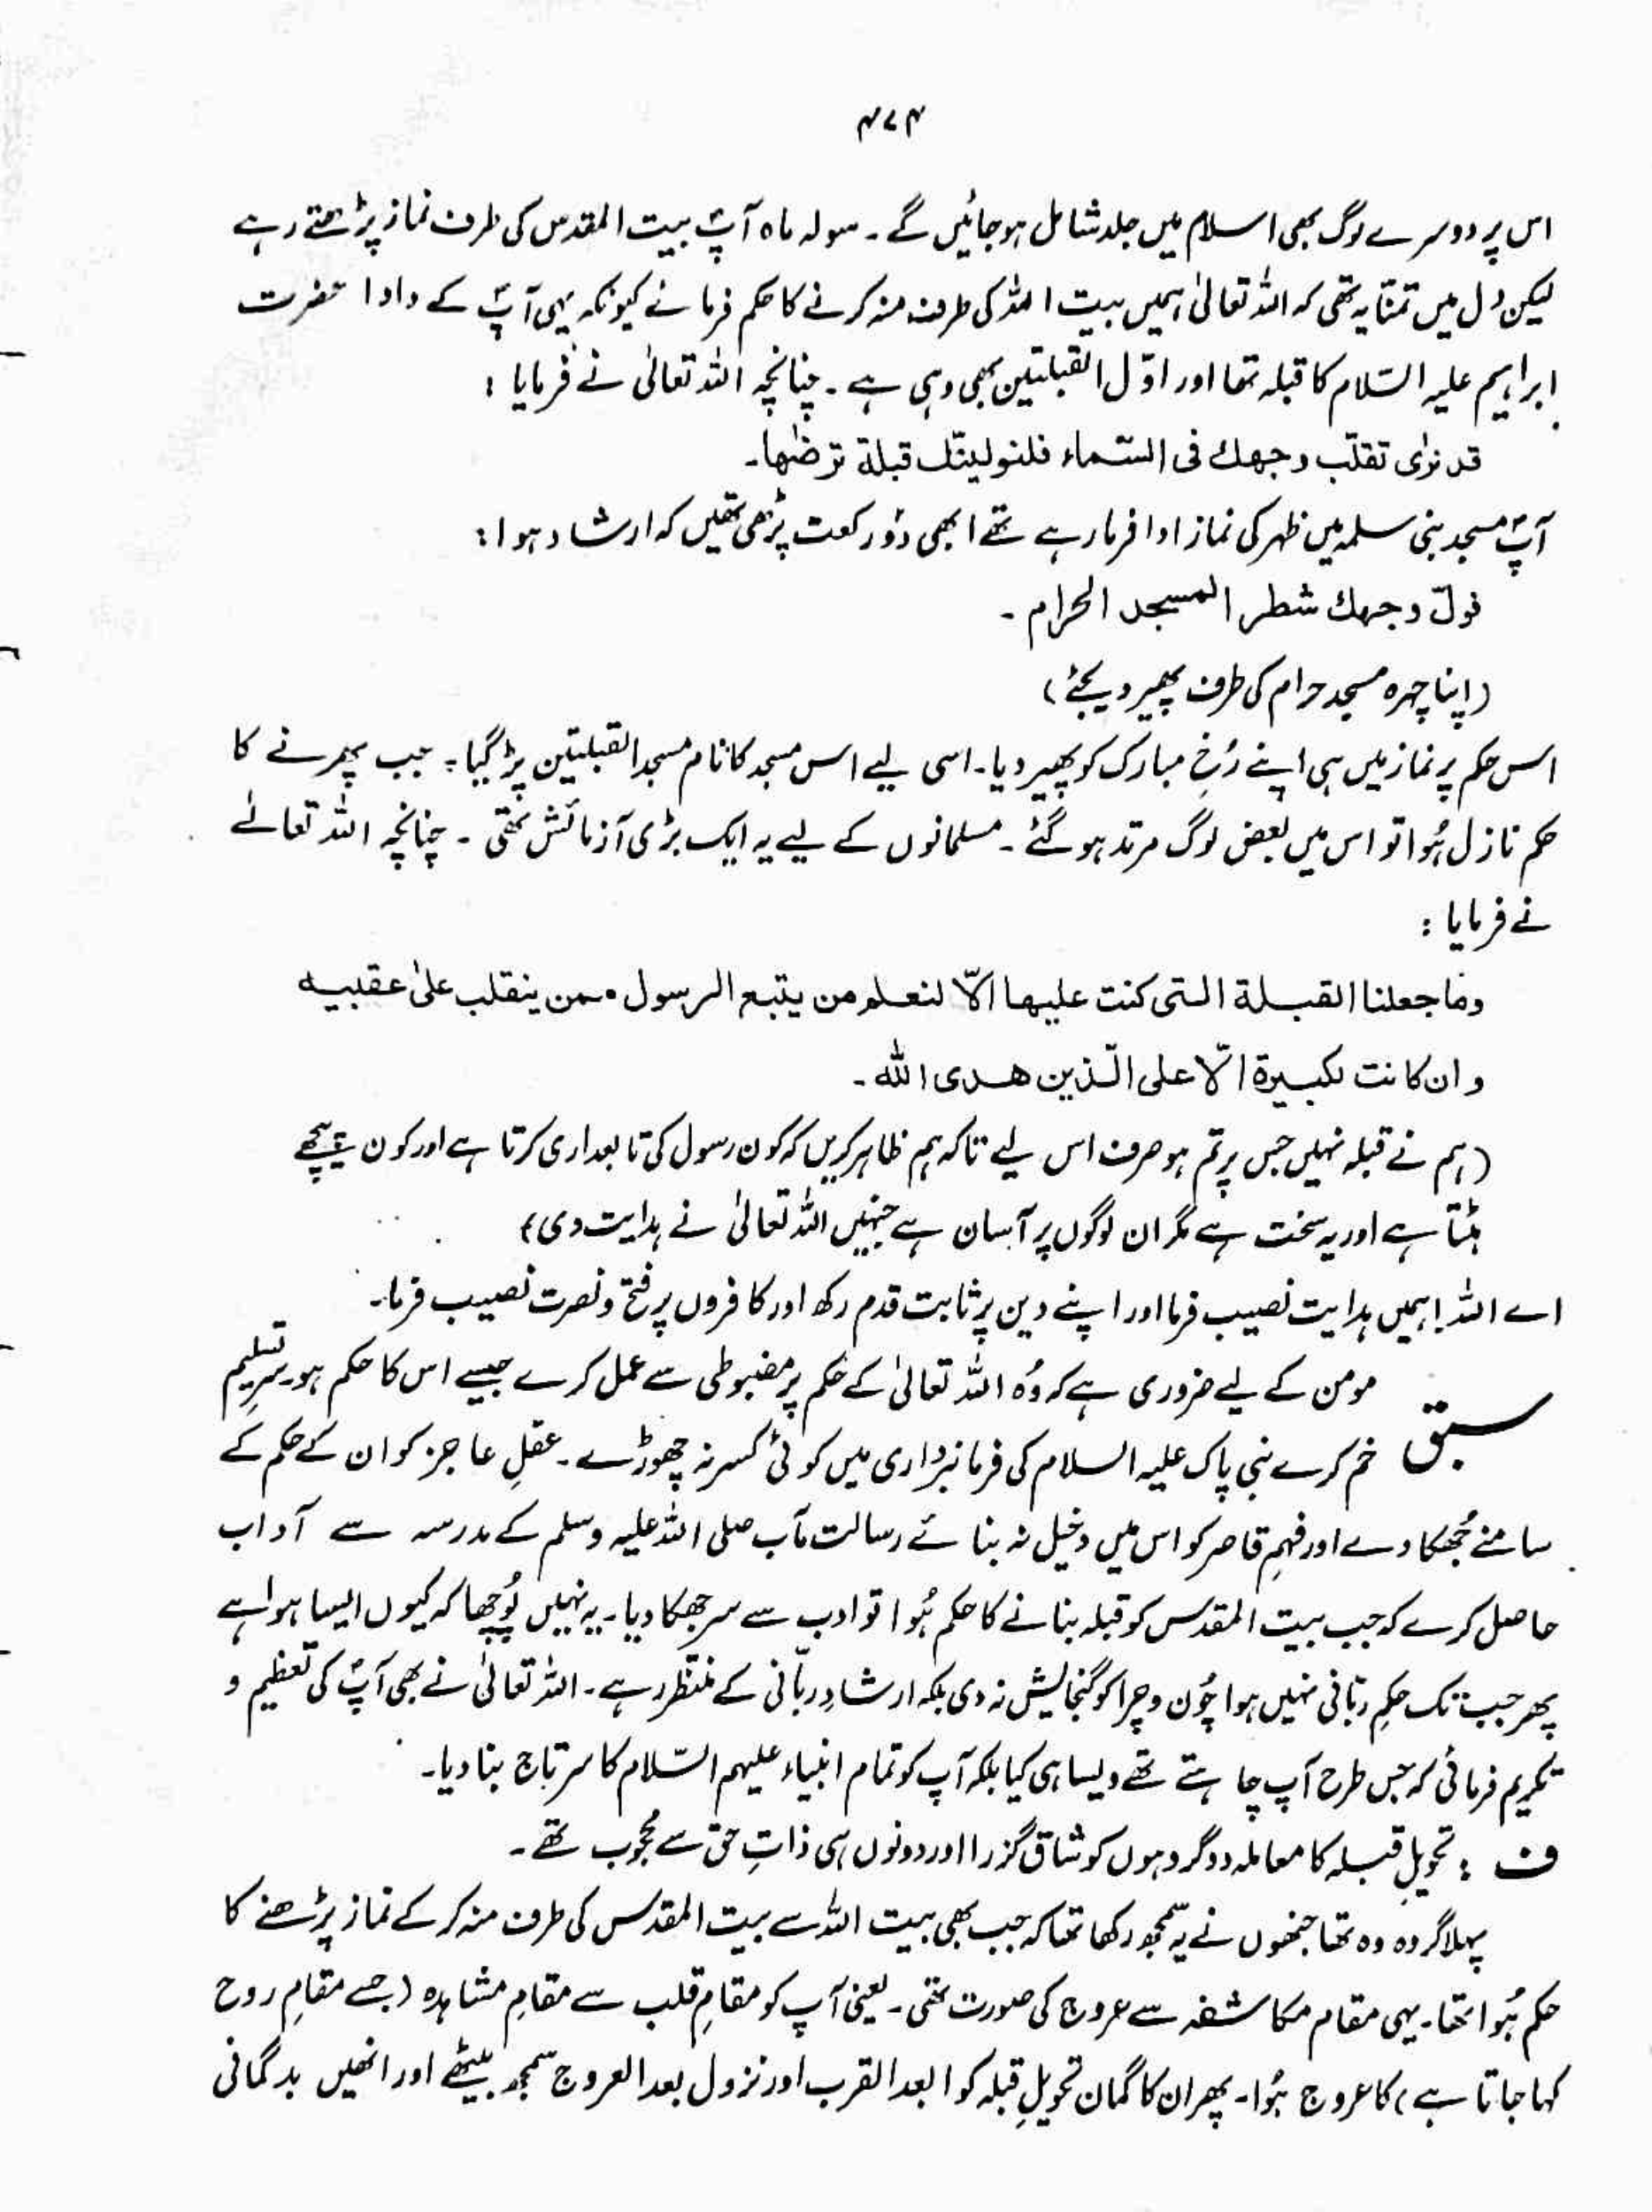 ۴۷۴
اس پر دوسرے لوگ بھی اسلام میں جلد شامل ہو جائیں گے۔ سولہ ماہ آپؐ بیت المقدس کی طرف نماز پڑھتے رہے
لیکن دل میں تمنّا یہ تھی کہ اللہ تعالیٰ ہمیں بیت اللہ کی طرف منہ کرنے کا حکم فرمائے کیونکہ یہی آپؐ کے دادا حضرت
ابراہیم علیہ السّلام کا قبلہ تھا اور اوّل القبلتین بھی وہی ہے۔ چنانچہ اللہ تعالیٰ نے فرمایا :
قد نرٰی تقلّب وجھك فی السّماء فلنولینّك قبلة ترضٰھا۔
آپؐ مسجد بنی سلمہ میں ظہر کی نماز ادا فرما رہے تھے ابھی دو رکعت پڑھی تھیں کہ ارشاد ہوا :
فولّ وجھك شطر المسجد الحرام ۔
(اپنا چہرہ مسجد حرام کی طرف پھیر دیجئے)
اس حکم پر نماز میں ہی اپنے رُخِ مبارک کو پھیر دیا۔ اسی لیے اس مسجد کا نام مسجد القبلتین پڑ گیا۔ جب پھرنے کا
حکم نازل ہُوا تو اس میں بعض لوگ مرتد ہو گئے۔ مسلمانوں کے لیے یہ ایک بڑی آزمائش تھی ۔ چنانچہ اللہ تعالےٰ
نے فرمایا :
وما جعلنا القبلة التی كنت علیھا الّا لنعلم من یتبع الرسول ممن ینقلب علیٰ عقبیه
و ان كانت لكبیرة الّا علی الّذین ھدی اللّٰه ۔
(ہم نے قبلہ نہیں جس پر تم ہو صرف اس لیے تاکہ ہم ظاہر کریں کہ کون رسول کی تابعداری کرتا ہے اور کون پیچھے
ہٹتا ہے اور یہ سخت ہے مگر ان لوگوں پر آسان ہے جنہیں اللہ تعالیٰ نے ہدایت دی)
اے اللہ! ہمیں ہدایت نصیب فرما اور اپنے دین پر ثابت قدم رکھ اور کافروں پر فتح و نصرت نصیب فرما۔
سبق مومن کے لیے ضروری ہے کہ وُہ اللہ تعالیٰ کے حکم پر مضبوطی سے عمل کرے جیسے اس کا حکم ہو سرِتسلیم
خم کرے نبی پاک علیہ السلام کی فرمانبرداری میں کوئی کسر نہ چھوڑے۔ عقلِ عاجز کو ان کے حکم کے
سامنے جُھکا دے اور فہمِ قاصر کو اس میں دخیل نہ بنائے رسالت مآب صلی اللہ علیہ وسلم کے مدرسہ سے آداب
حاصل کرے کہ جب بیت المقدس کو قبلہ بنانے کا حکم ہُوا تو ادب سے سر جھکا دیا۔ یہ نہیں پُوچھا کہ کیوں ایسا ہوا ہے
پھر جب تک حکمِ ربّانی نہیں ہوا چُون و چرا کو گنجایش نہ دی بلکہ ارشادِ ربّانی کے منتظر رہے۔ اللہ تعالیٰ نے بھی آپؐ کی تعظیم و
تکریم فرمائی کہ جس طرح آپ چاہتے تھے ویسا ہی کیا بلکہ آپ کو تمام انبیاء علیہم السّلام کا سرتاج بنا دیا۔
ف : تحویلِ قبلہ کا معاملہ دو گروہوں کو شاق گزرا اور دونوں ہی ذاتِ حق سے محجوب تھے ۔
پہلا گروہ وہ تھا جنھوں نے یہ سمجھ رکھا تھا کہ جب بھی بیت اللہ سے بیت المقدس کی طرف منہ کر کے نماز پڑھنے کا
حکم ہُوا تھا۔ یہی مقام مکاشفہ سے عروج کی صورت تھی۔ یعنی آپ کو مقامِ قلب سے مقامِ مشاہدہ (جسے مقامِ روح
کہا جاتا ہے) کا عروج ہُوا۔ پھر ان کا گمان تحویلِ قبلہ کو البعد القرب اور نزول بعد العروج سمجھ بیٹھے اور انھیں بدگمانی